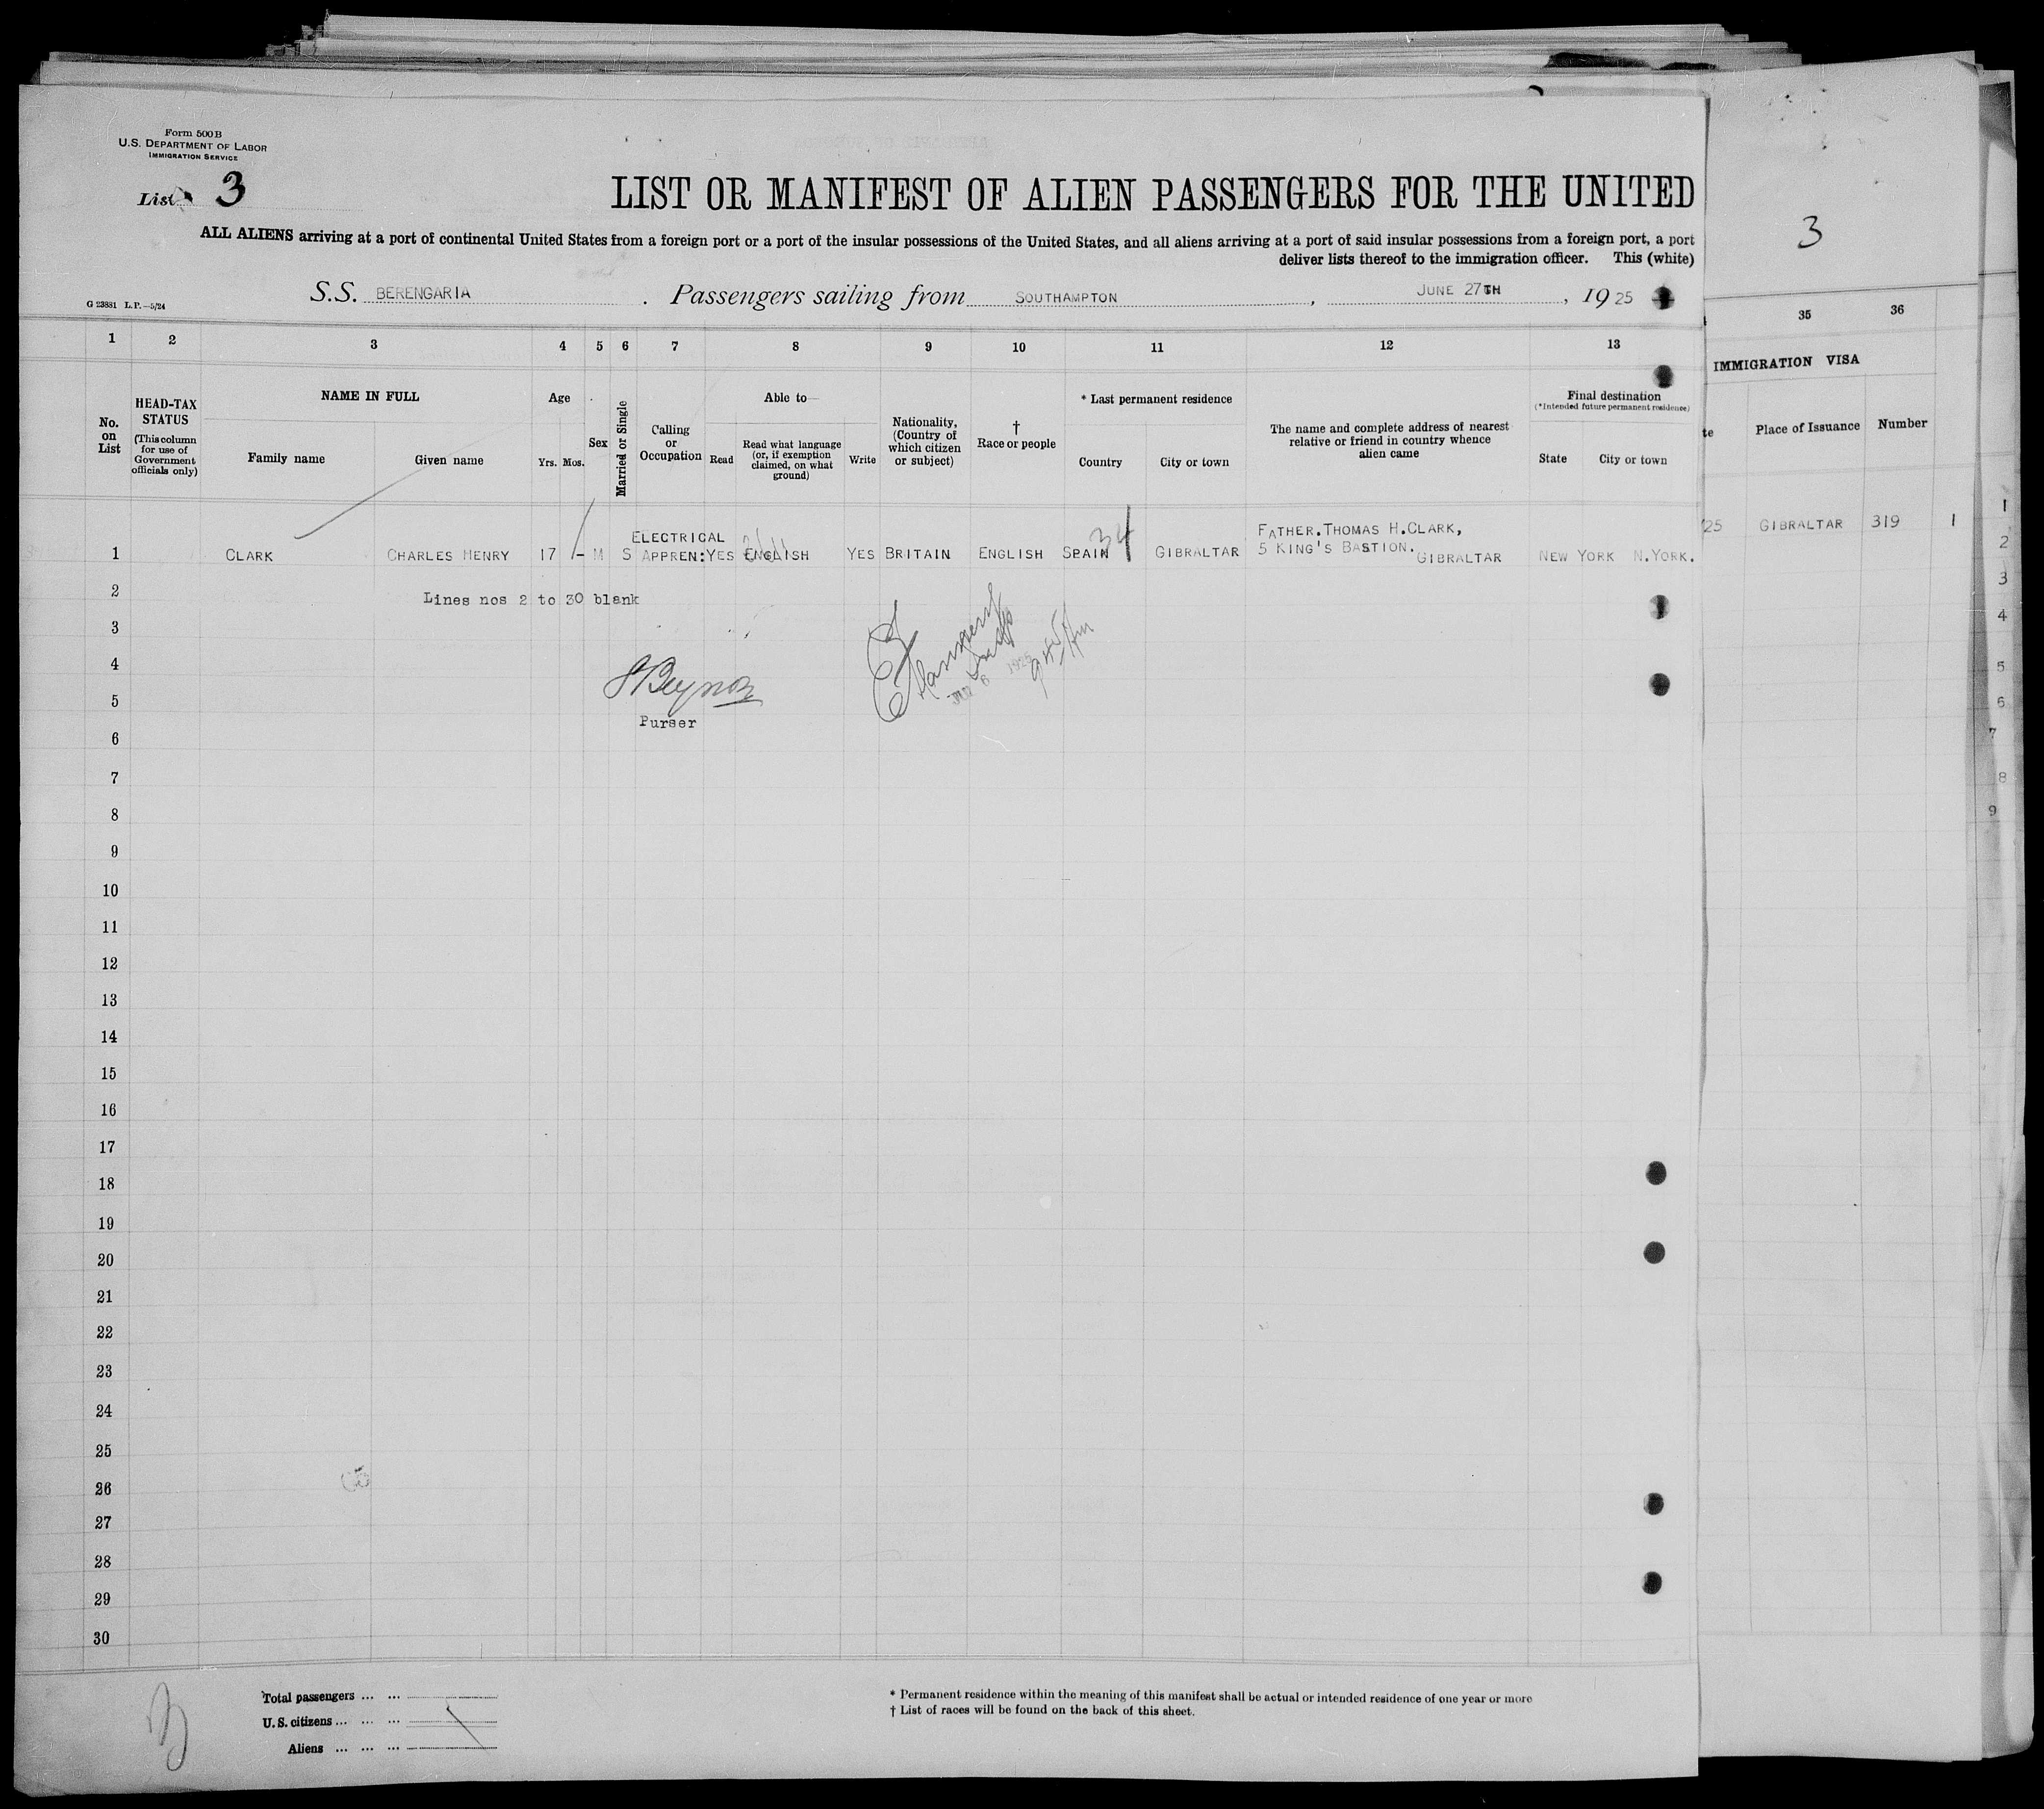 Form 500 B
U.S. DEPARTMENT OF LABOR
IMMIGRATION SERVICE
List 3
LIST OR MANIFEST OF ALIEN PASSENGERS FOR THE UNITED
3
ALL ALIENS arriving at a port of continental United States from a foreign port or a port of the insular possessions of the United States, and all aliens arriving at a port of said insular possessions from a foreign port, a port
deliver lists thereof to the immigration officer. This (white)
G 23881 L.P.—5/24
S.S. BERENGARIA. Passengers sailing from SOUTHAMPTON, JUNE 27TH, 1925
1 2 3 4 5 6 7 8 9 10 11 12 13 35 36
IMMIGRATION VISA
No. on List
HEAD-TAX STATUS
(This column for use of Government officials only)
NAME IN FULL
Family name
Given name
Age
Yrs. Mos.
Sex
Married or Single
Calling or Occupation
Able to—
Read
Read what language (or, if exemption claimed, on what ground)
Write
Nationality, (Country of which citizen or subject)
† Race or people
* Last permanent residence
Country
City or town
The name and complete address of nearest relative or friend in country whence alien came
Final destination
(*Intended future permanent residence)
State
City or town
te
Place of Issuance
Number
1 CLARK CHARLES HENRY 17 - M S ELECTRICAL APPREN: YES ENGLISH YES BRITAIN ENGLISH SPAIN 34 GIBRALTAR FATHER. THOMAS H. CLARK, 5 KING'S BASTION. GIBRALTAR NEW YORK N.YORK.
25 GIBRALTAR 319 1
Lines nos 2 to 30 blank
Purser
2
3
4
5
6
7
8
9
10
11
12
13
14
15
16
17
18
19
20
21
22
23
24
25
26
27
28
29
30
1
2
3
4
5
6
7
8
9
Total passengers ... ...
U.S. citizens ... ... ...
Aliens ... ... ...
* Permanent residence within the meaning of this manifest shall be actual or intended residence of one year or more
† List of races will be found on the back of this sheet.